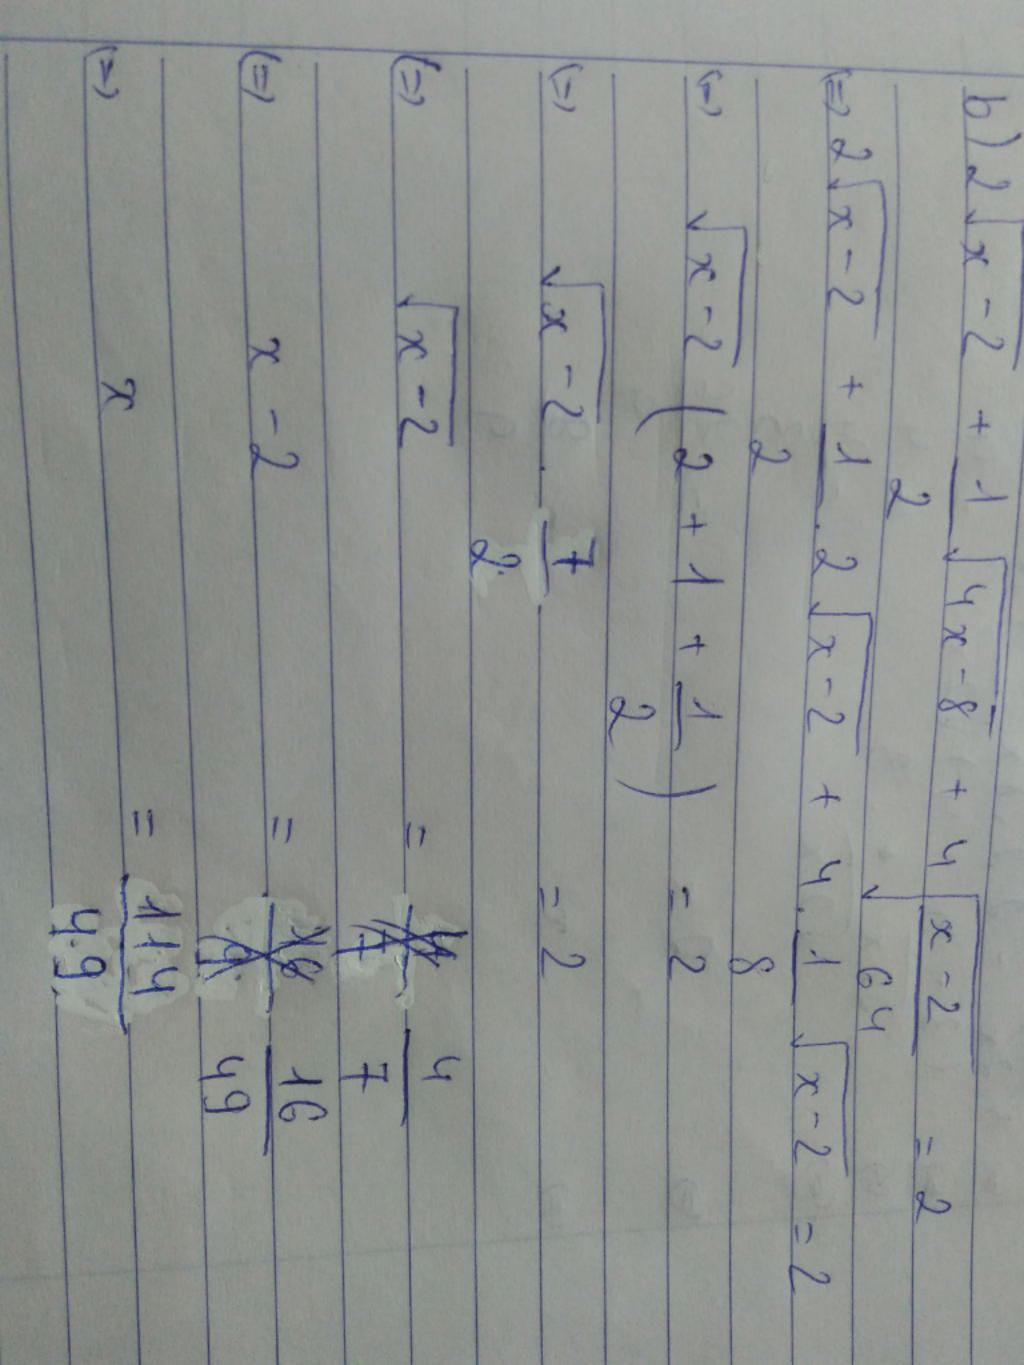 b) 2√(x-2) + 1/2 √(4x-8) + 4 √((x-2)/64) = 2
(=) 2√(x-2) + 1/2 . 2√(x-2) + 4 . 1/8 √(x-2) = 2
(=) √(x-2) (2 + 1 + 1/2) = 2
(=) √(x-2) . 7/2 = 2
(=) √(x-2) = 4/7
(=) x - 2 = 16/49
(=) x = 114/49